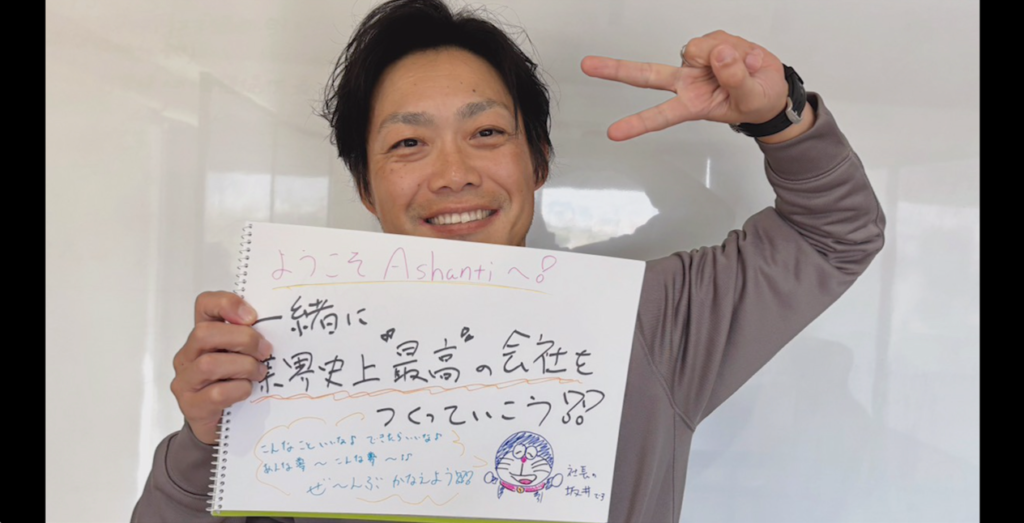 ようこそ Ashantiへ!
一緒に
業界史上"最高"の会社を
つくっていこう!!
こんなこといいな♪ できたらいいな♪
あんな夢〜こんな夢〜♪
ぜ〜んぶ かなえよう!!!
社長の
坂井です